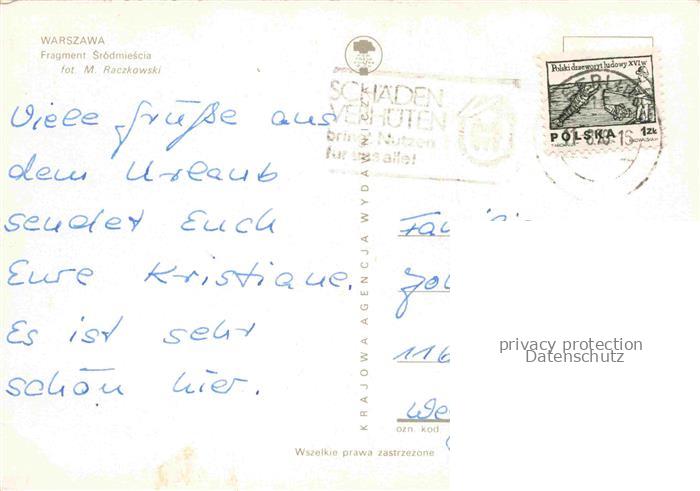 WARSZAWA
Fragment Śródmieścia
fot. M. Raczkowski
SCHÄDEN
VERHÜTEN
bringt Nutzen
für uns alle!
Polski drzeworyt ludowy XVI w
POLSKA 1zł
Viele Grüße aus
dem Urlaub
sendet Euch
Eure Kristiane.
Es ist sehr
schön hier.
KRAJOWA AGENCJA WYDAWNICZA
Fam
116
We
ozn. kod
Wszelkie prawa zastrzeżone
privacy protection
Datenschutz